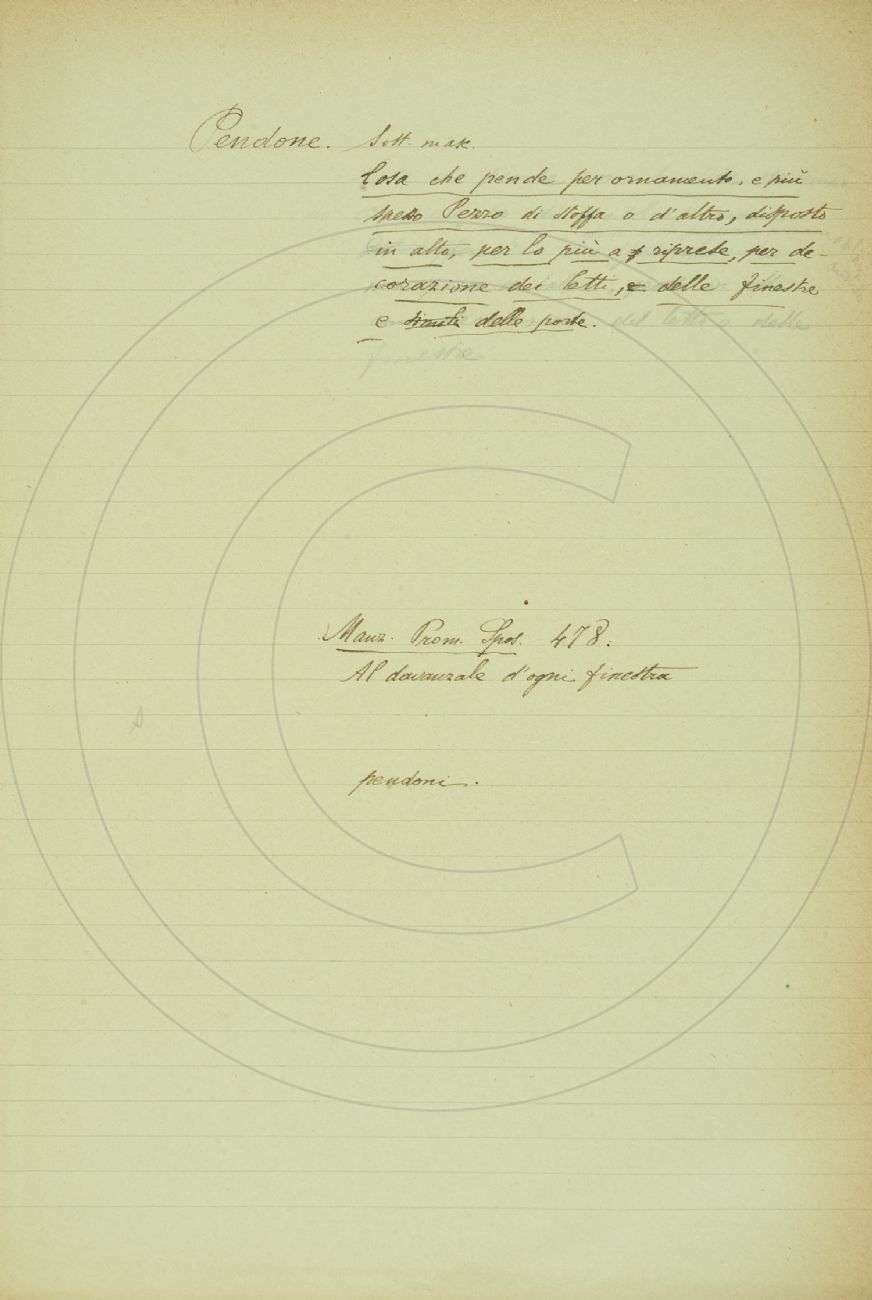 Pendone. Sost. masc.
Cosa che pende per ornamento, e più
spesso Pezzo di stoffa o d'altro, disposto
in alto, per lo più a riprese, per de-
corazione dei letti, e delle finestre
e delle porte.
Manz. Prom. Spos. 478:
Al davanzale d'ogni finestra
pendoni.